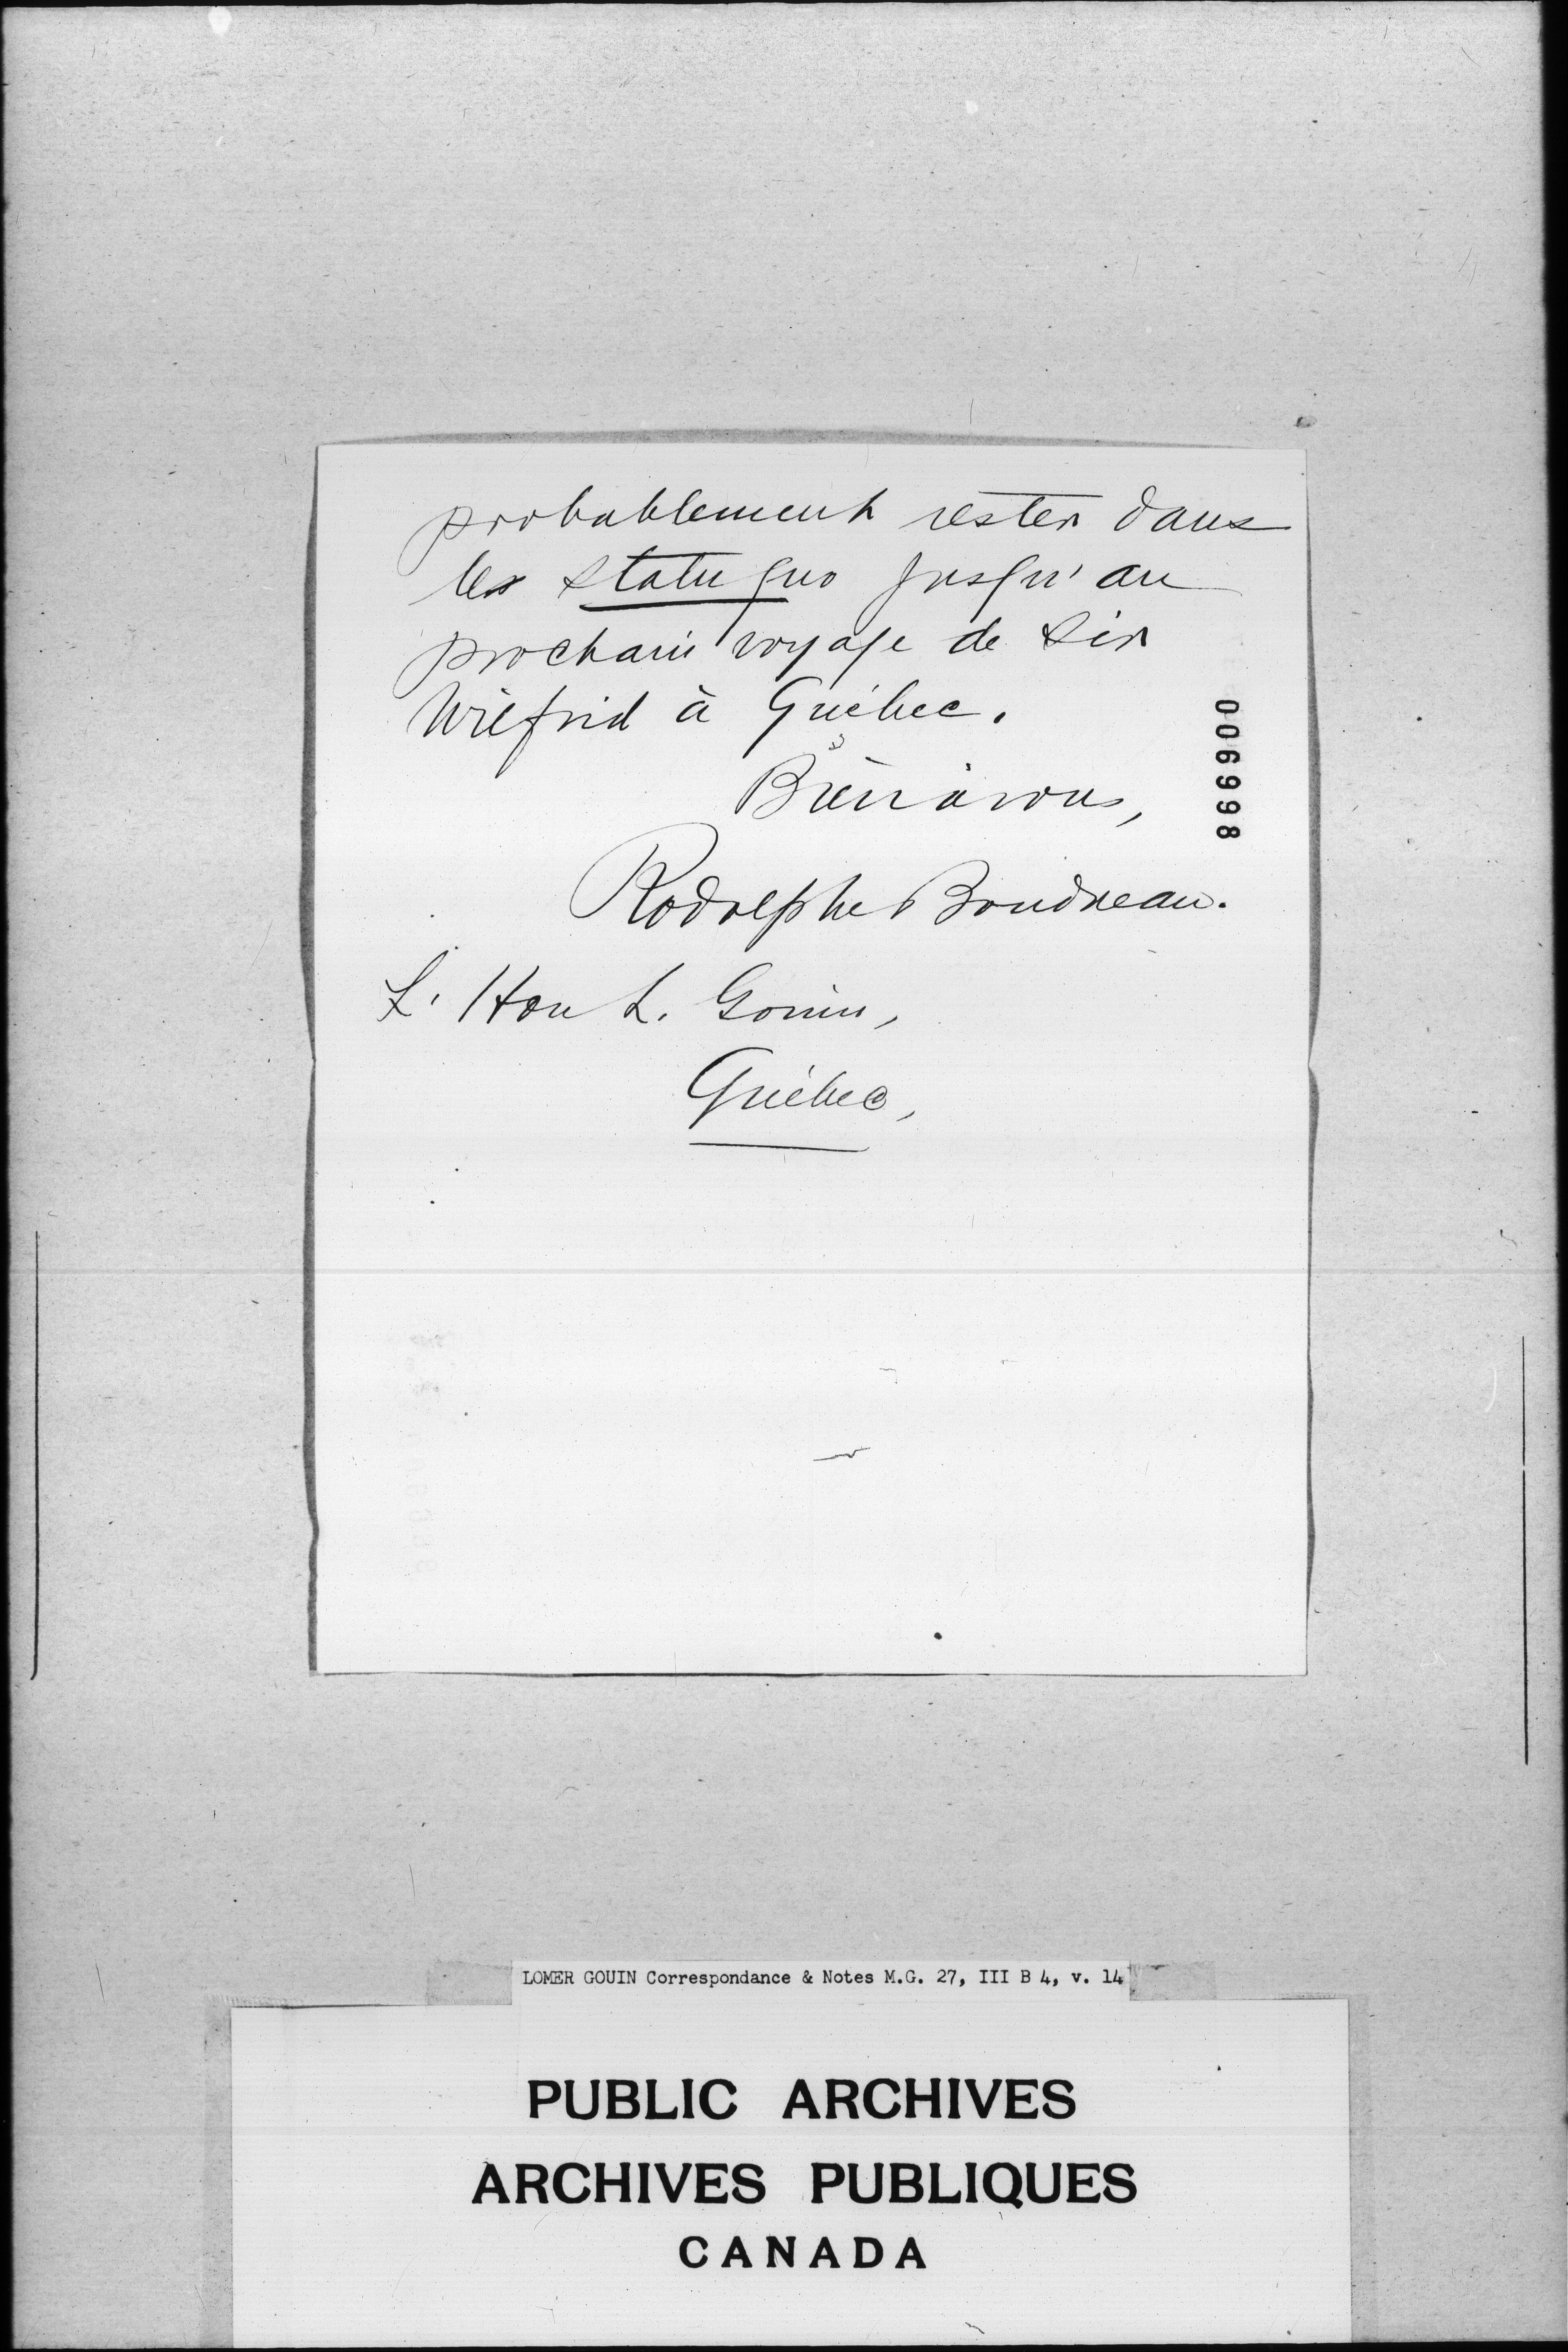 probablement rester dans
le statu quo jusqu'au
prochain voyage de Sir
Wilfrid à Québec.
Bien à vous,
Rodolphe Boudreau.
L'Hon L. Gouin,
Québec,
006998
LOMER GOUIN Correspondance & Notes M.G. 27, III B 4, v. 14
PUBLIC ARCHIVES
ARCHIVES PUBLIQUES
CANADA